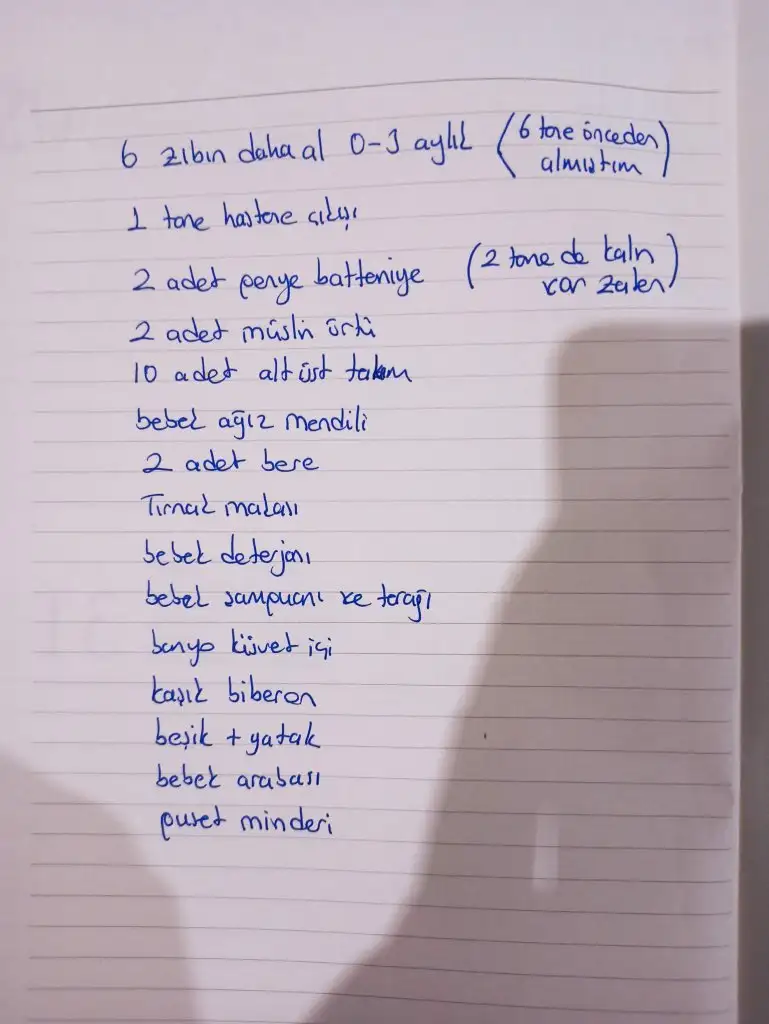 6 zıbın daha al 0-3 aylık (6 tane önceden almıştım)
1 tane hastane çıkışı
2 adet penye battaniye (2 tane de kalın var zaten)
2 adet müslin örtü
10 adet alt üst takım
bebek ağız mendili
2 adet bere
Tırnak makası
bebek deterjanı
bebek şampuanı ve tarağı
banyo küvet içi
kaşık biberon
beşik + yatak
bebek arabası
puset minderi